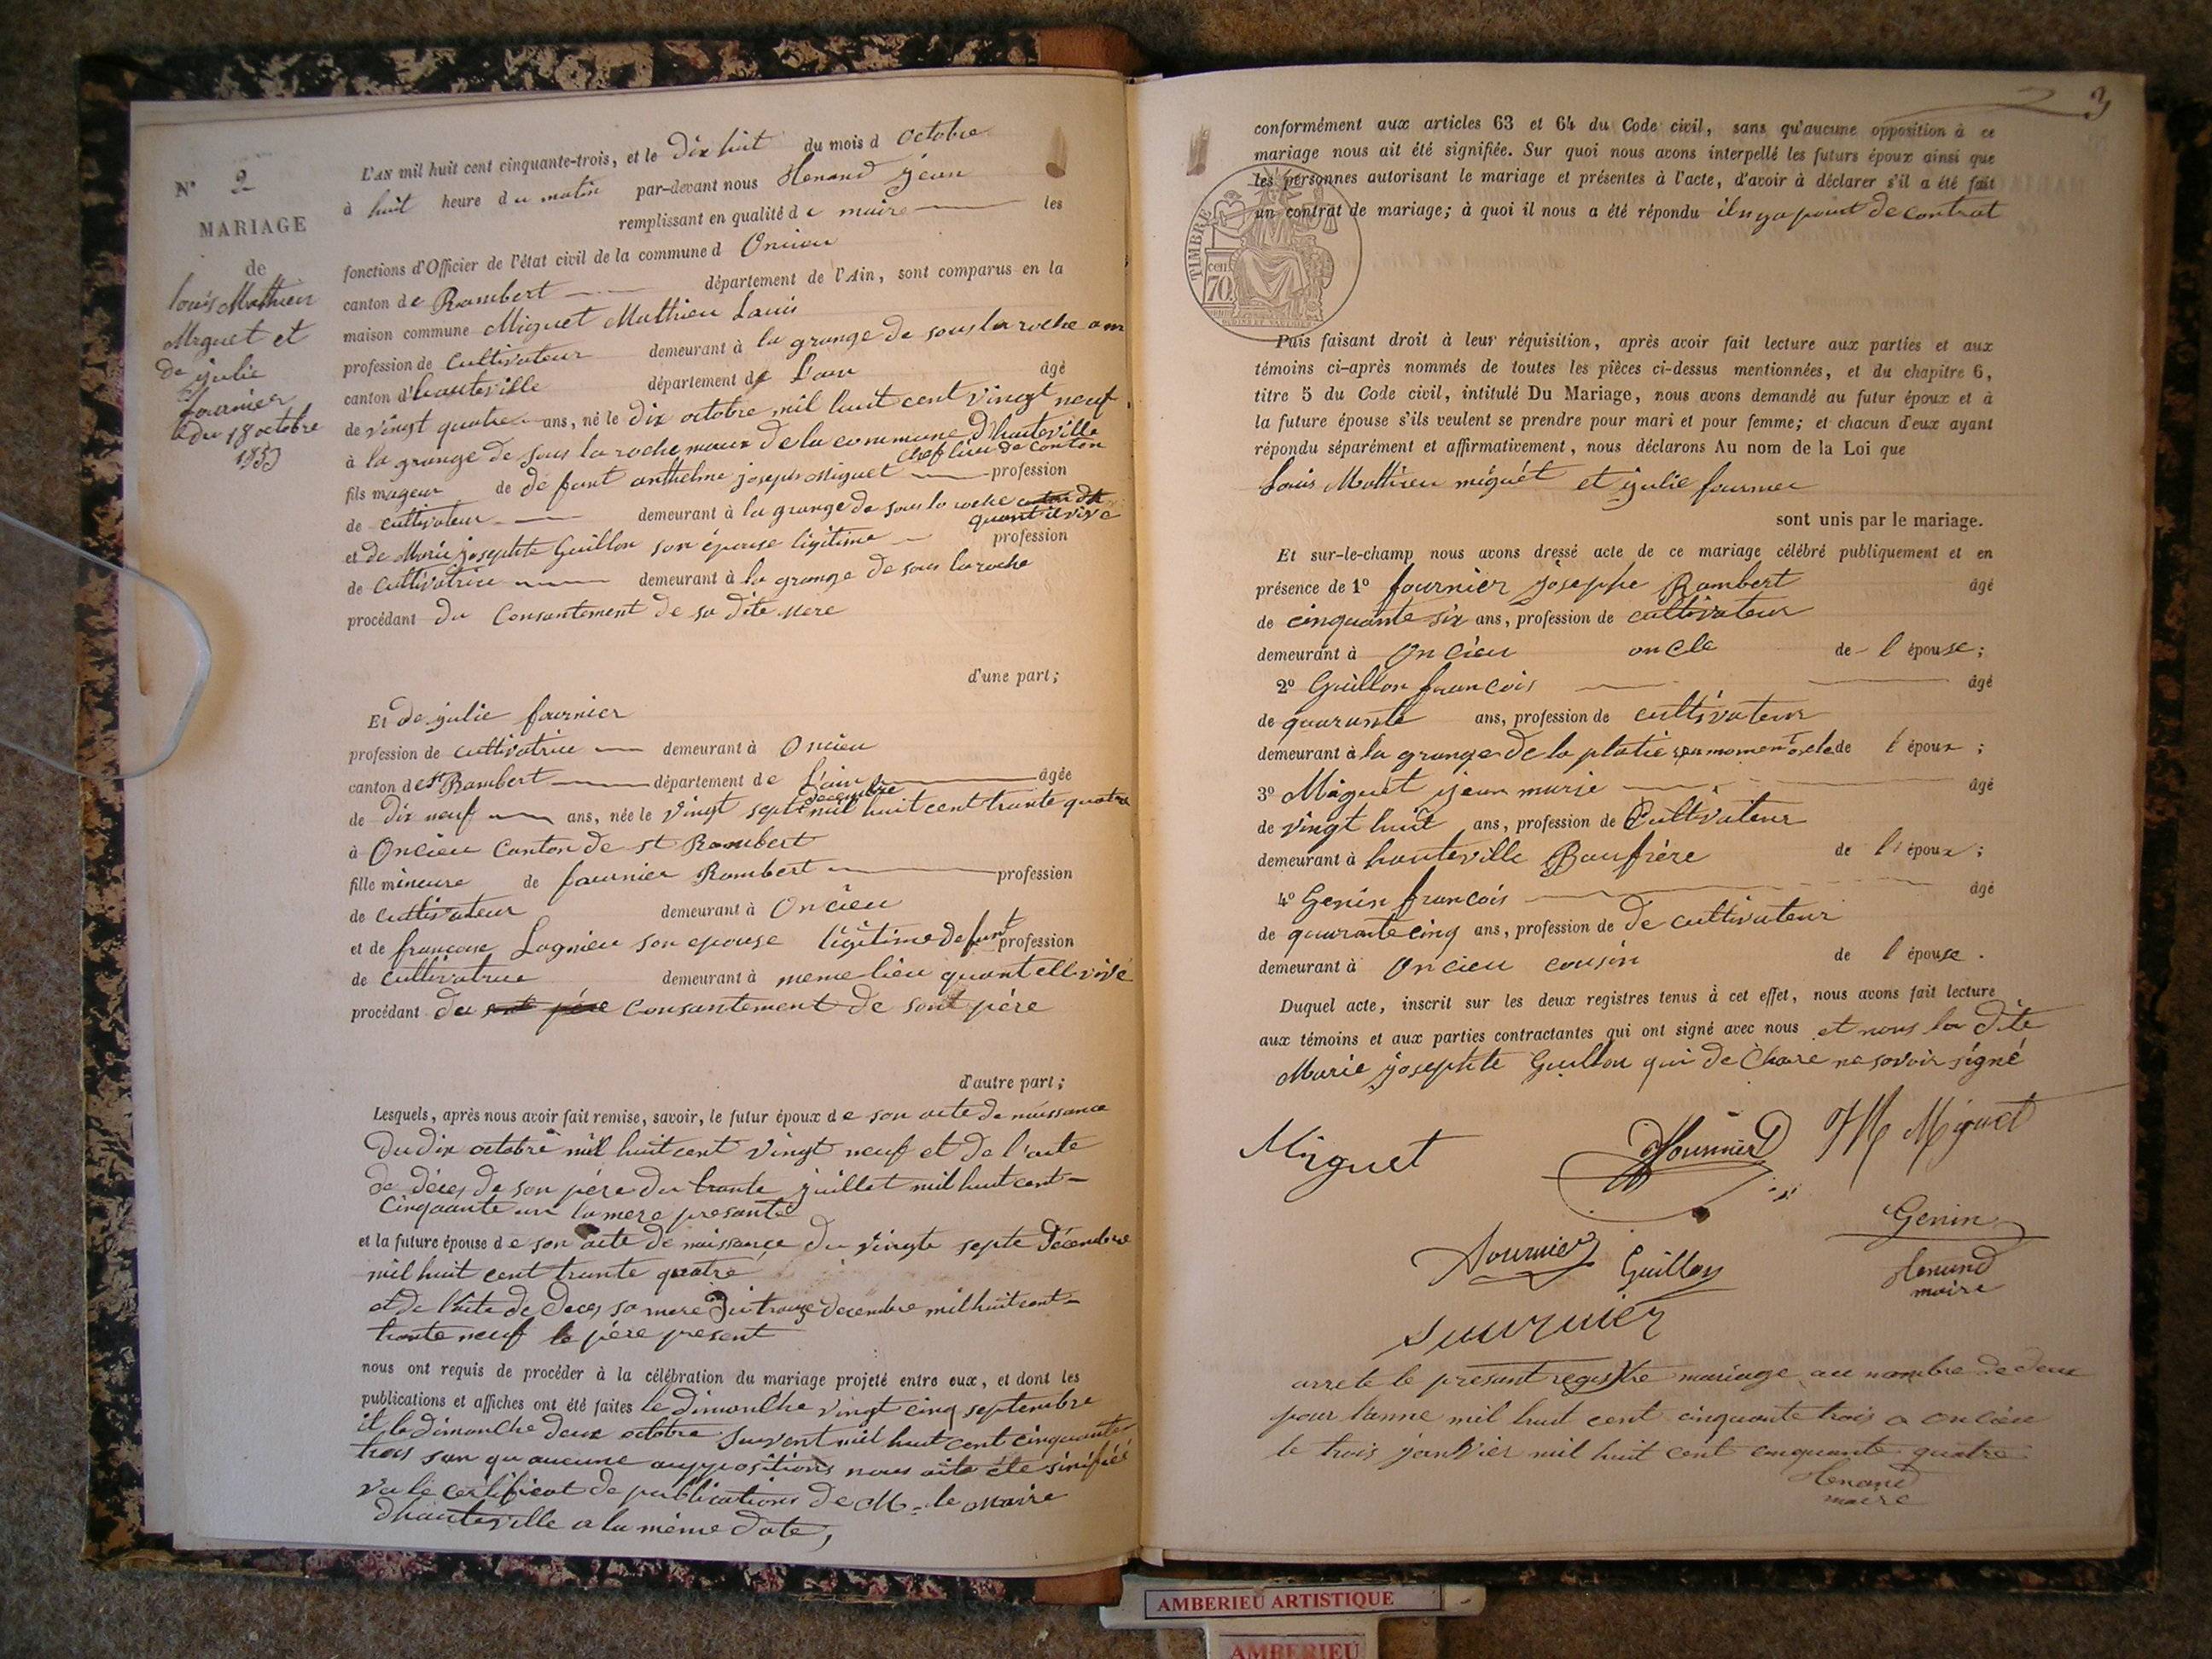 N° 2
MARIAGE
de
louis Mathieu
Miguet et
de julie
fournier
du 18 octobre
1853
L'AN mil huit cent cinquante-trois, et le dix huit du mois d octobre
à huit heure du matin par-devant nous Henand jean
remplissant en qualité de maire les
fonctions d'Officier de l'état civil de la commune d Oncieu
canton de Rambert département de l'Ain, sont comparus en la
maison commune Miguet Mathieu Louis
profession de cultivateur demeurant à la grange de sous la roche
canton d'hauteville département de L'ain âgé
de vingt quatre ans, né le dix octobre mil huit cent vingt neuf
à la grange de sous la roche de la commune D'hauteville
chef lieu de conton
fils mageur de de funt anthelme joseph Miguet profession
de cultivateur demeurant à la grange de sous la roche
quant il vivé
et de Marie josephte Guillon son épouse légitime profession
de cultivatrice demeurant à la grange de sous la roche
procédant du Consantement de sa dite mere
d'une part;
Et de julie fournier
profession de cultivatrice demeurant à Oncieu
canton de st Rambert département de L'ain âgée
decembre
de dix neuf ans, née le vingt sept mil huit cent trante quatre
à Oncieu Canton de st Rambert
fille mineure de fournier Rambert profession
de cultivateur demeurant à Oncieu
et de francoise Lagnieu son epouse légitime defunt profession
de cultivatrice demeurant à meme lieu quant elle vivé
procédant du sont père Consantement de sont père
d'autre part;
Lesquels, après nous avoir fait remise, savoir, le futur époux de son acte de naissance
du dix octobre mil huit cent vingt neuf et de l'acte
de déces de son père du trante juillet mil huit cent
Cinquante un la mere presante
et la future épouse de son acte de naissance du vingte septe décembre
mil huit cent trante quatre
et de l'acte de deces sa mere du decembre mil huit cent
trante neuf le père present
nous ont requis de procéder à la célébration du mariage projeté entre eux, et dont les
publications et affiches ont été faites le dimanche vingt cinq septembre
et le dimanche deux octobre suivent mil huit cent cinquante
trois san qu aucune auppositions nous aite été sinifiéé
vu le certificat de publications de M. le Maire
dhauteville a la même date,
3
conformément aux articles 63 et 64 du Code civil, sans qu'aucune opposition à ce
mariage nous ait été signifiée. Sur quoi nous avons interpellé les futurs époux ainsi que
les personnes autorisant le mariage et présentes à l'acte, d'avoir à déclarer s'il a été fait
un contrat de mariage; à quoi il nous a été répondu il n y a point de contrat
TIMBRE
cen.
70
Puis faisant droit à leur réquisition, après avoir fait lecture aux parties et aux
témoins ci-après nommés de toutes les pièces ci-dessus mentionnées, et du chapitre 6,
titre 5 du Code civil, intitulé Du Mariage, nous avons demandé au futur époux et à
la future épouse s'ils veulent se prendre pour mari et pour femme; et chacun d'eux ayant
répondu séparément et affirmativement, nous déclarons Au nom de la Loi que
Louis Mathieu miguét et julie fournier
sont unis par le mariage.
Et sur-le-champ nous avons dressé acte de ce mariage célébré publiquement et en
présence de 1° fournier josephe Rambert âgé
de cinquante six ans, profession de cultivateur
demeurant à Oncieu oncle de l épouse;
2° Guillon francois âgé
de quarante ans, profession de cultivateur
demeurant à la grange de la platie oncle de l époux;
3° Miguet jean marie âgé
de vingt huit ans, profession de Cultivateur
demeurant à hauteville Baufrére de l époux;
4° Genin francois âgé
de quarante cinq ans, profession de de cultivateur
demeurant à Oncieu cousin de l épouse.
Duquel acte, inscrit sur les deux registres tenus à cet effet, nous avons fait lecture
aux témoins et aux parties contractantes qui ont signé avec nous et nous la dite
Marie josephte Guillon qui de Clare ne savoir signé
Miguet
Fournier
JM Miguet
Genin
Fournier
Guillon
Henand
maire
fournier
arrete le presant registre mariage au nombre de deux
pour l'anne mil huit cent cinquante trois a oncieu
le trois janvier mil huit cent cinquante quatre
Henand
maire
AMBERIEU ARTISTIQUE
AMBERIEU